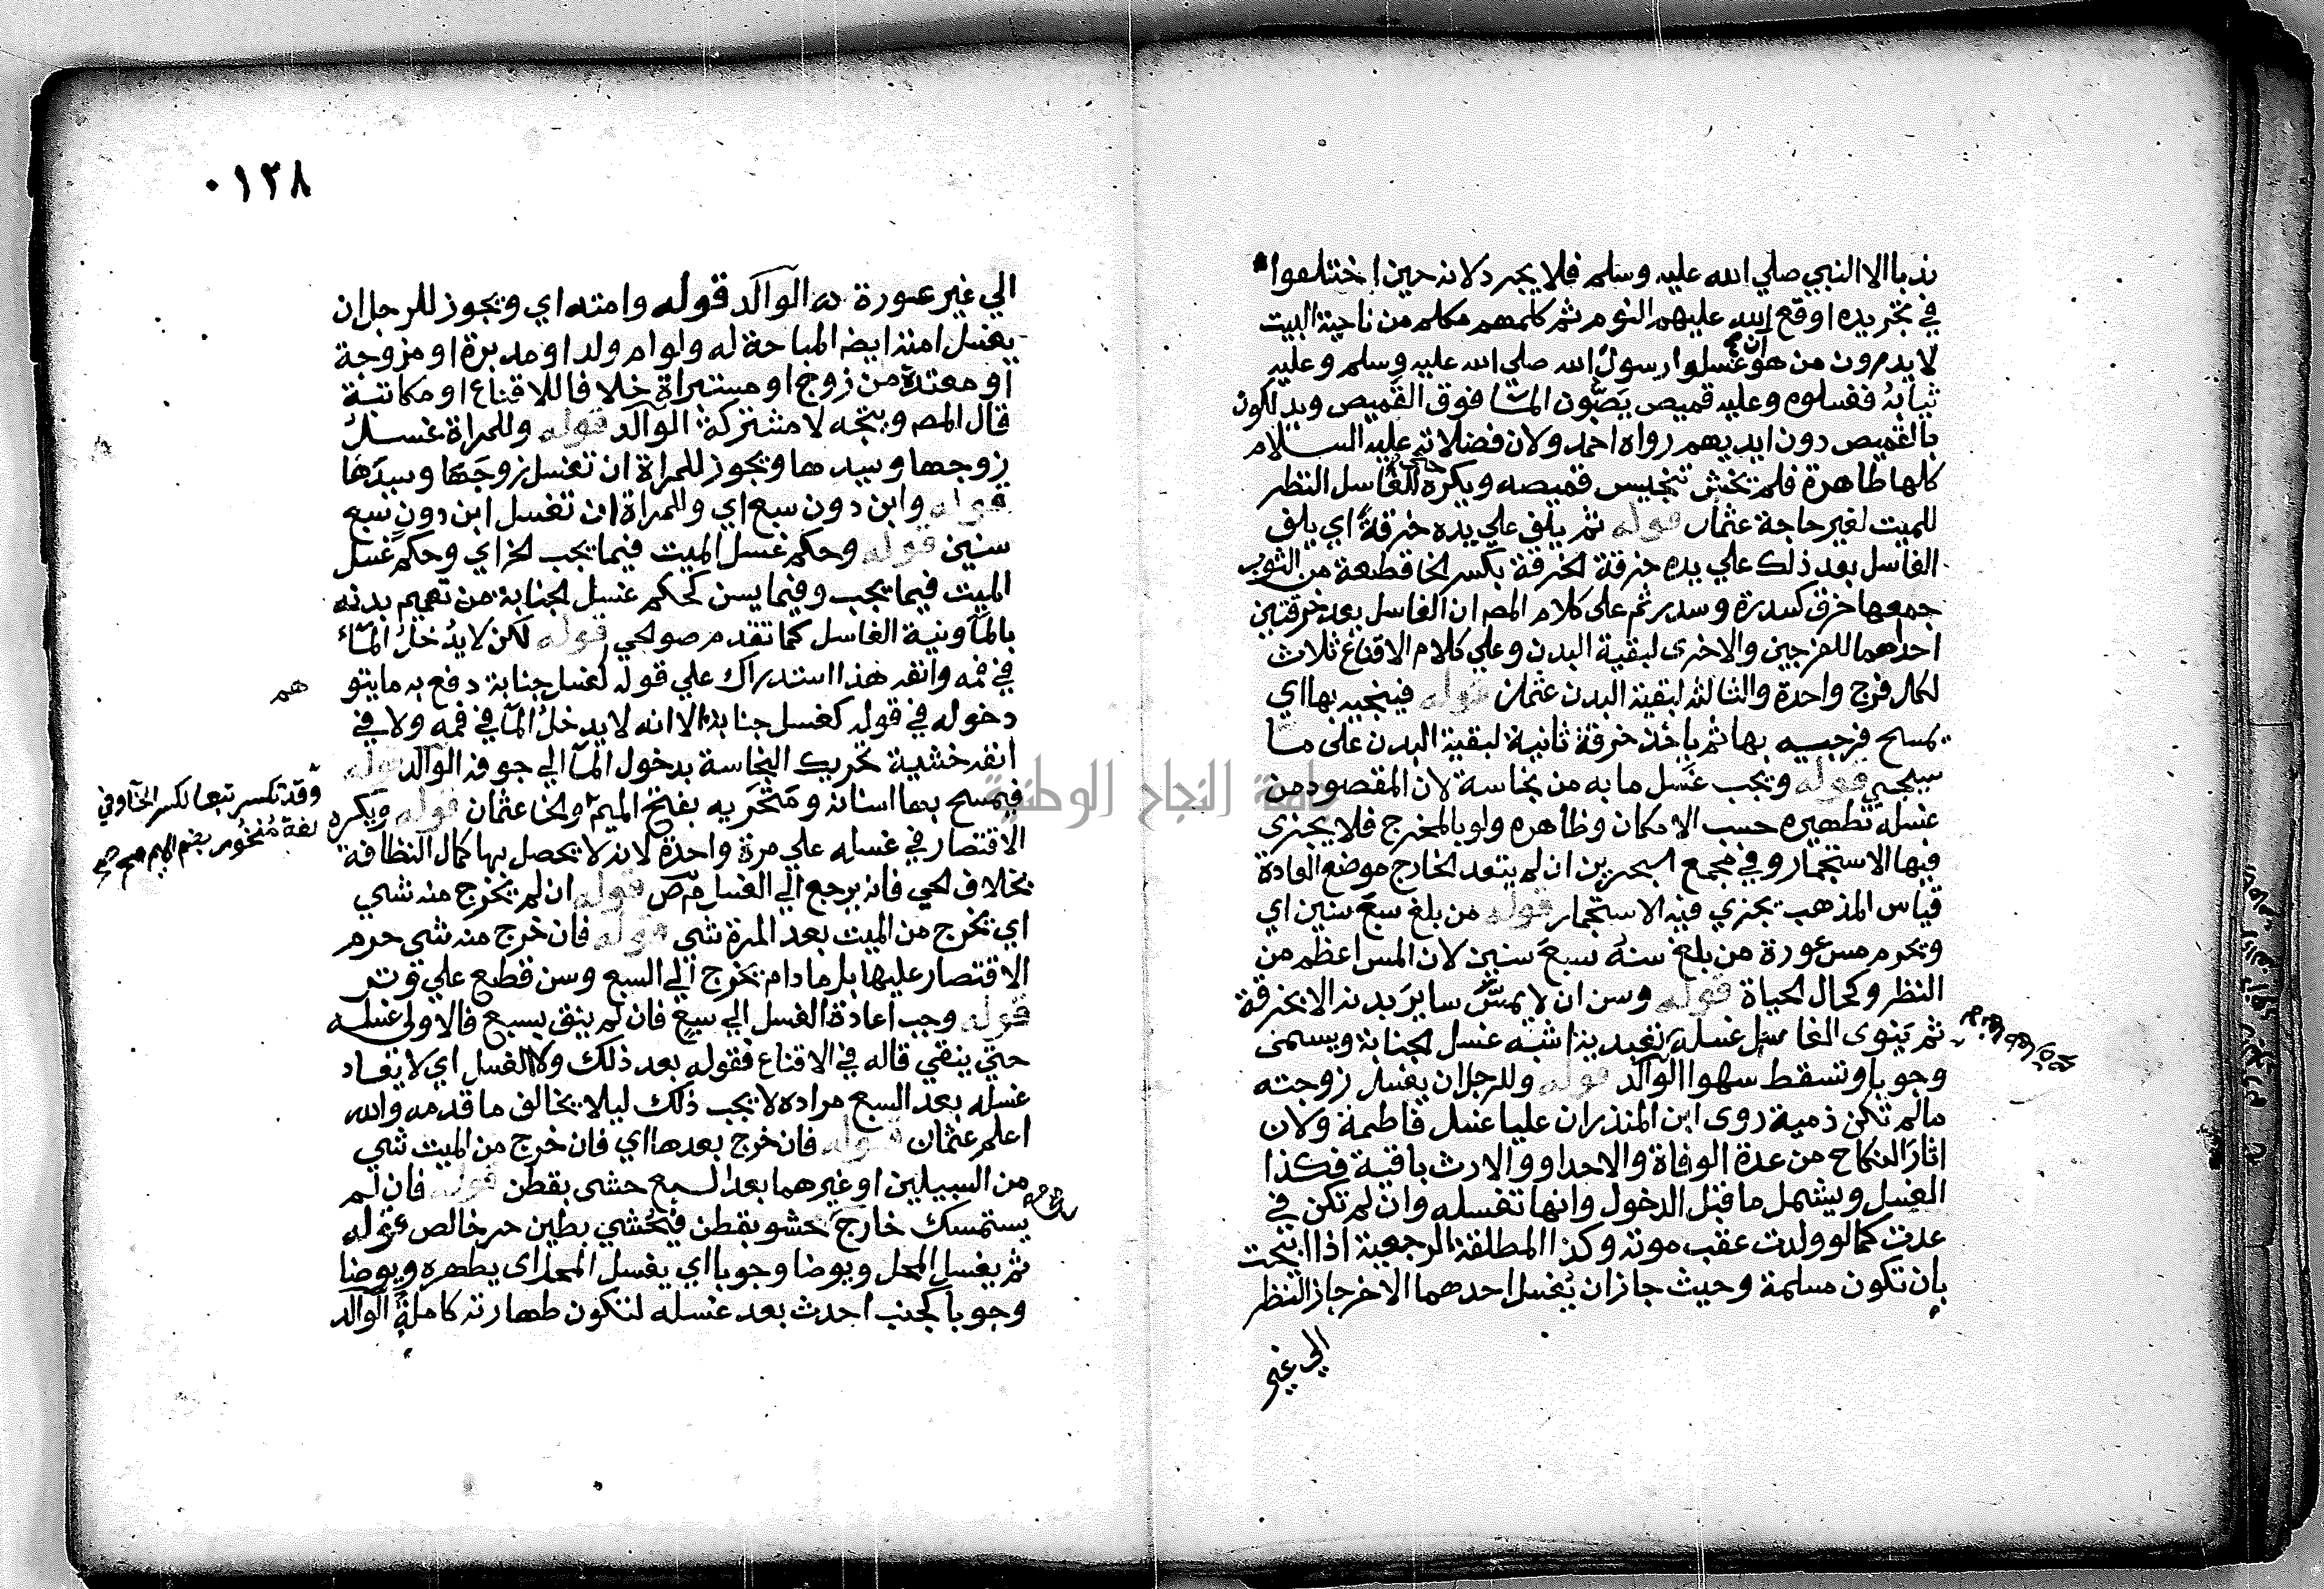 ندبا الا النبي صلي الله عليه وسلم فلا يجرد لانه حين اختلفوا
في تجريده اوقع الله عليهم النوم ثم كلمهم مكلم من ناحية البيت
لا يدرون من هو ان غسلوا رسول الله صلي الله عليه وسلم وعليه
ثيابه فغسلوه وعليه قميص يصبون الماء فوق القميص ويدلكون
بالقميص دون ايديهم رواه احمد ولان فضلاته عليه السلام
كلها طاهرة فلم يخش تنجيس قميصه ويكره للغاسل النظر
للميت لغير حاجة عثمان قوله ثم يلف علي يده خرقة اي يلف
الغاسل بعد ذلك علي يده خرقة الخرقة بكسر الخا قطعة من الثوب
جمعها خرق كسدرة وسدر ثم علي كلام المص ان الغاسل يعد خرقتين
احداهما للفرجين والاخرى لبقية البدن وعلي كلام الاقناع ثلاث
لكل فرج واحدة والثالثة لبقية البدن عثمان قوله فينجيه بها اي
يمسح فرجيه بها ثم ياخذ خرقة ثانية لبقية البدن علي ما
سيجي قوله ويجب غسل ما به من نجاسة لان المقصود من
غسله تطهيره حسب الامكان وظاهره ولو بالمخرج فلا يجزي
فيها الاستجمار وفي مجمع البحرين ان لم يتعد الخارج موضع العادة
قياس المذهب يجزي فيه الاستجمار قوله من بلغ سبع سنين اي
ويحرم مس عورة من بلغ سنه سبع سنين لان المس اعظم من
النظر وكحال الحياة قوله وسن ان لا يمس ساير بدنه الا بخرقة
ثم ينوى الغاسل غسله تعبدية اشبه غسل الجنابة ويسمى
وجوبا وتسقط سهوا الوالد قوله وللرجل ان يغسل زوجته
ما لم تكن ذمية روى ابن المنذر ان عليا غسل فاطمة ولان
اثار النكاح من عدة الوفاة والاحداد والارث باقية فكذا
الغسل ويشمل ما قبل الدخول وانها تغسله وان لم تكن في
عدة كما لو ولدت عقب موته وكذا المطلقة الرجعية اذا ابيحت
بان تكون مسلمة وحيث جاز ان يغسل احدهما الاخر جاز النظر
الي غير
٠١٢٨
الي غير عورة الوالد قوله وامته اي ويجوز للرجل ان
يغسل امته ايضا المباحة له ولو ام ولد او مدبرة او مزوجة
او معتدة من زوج او مستبراة خلافا للاقناع او مكاتبة
قال المص ويتجه لا مشتركة الوالد قوله وللمراة غسل
زوجها وسيدها ويجوز للمراة ان تغسل زوجها وسيدها
قوله وابن دون سبع اي وللمراة ان تغسل ابن دون سبع
سنين قوله وحكم غسل الميت فيما يجب الخ اي وحكم غسل
الميت فيما يجب وفيما يسن كحكم غسل الجنابة من تعميم بدنه
بالماء ونية الغاسل كما تقدم صوالحي قوله لكن لا يدخل الماء
في فمه وانفه هذا استدراك علي قوله كغسل جنابة دفع به ما يتو
هم
دخوله في قوله كغسل جنابة الا انه لا يدخل الما في فمه ولا في
انفه خشية تحريك النجاسة بدخول الما الي جوفه الوالد قوله
فيمسح بها اسنانه ومنخريه بفتح الميم والخا عثمان قوله ويكره
وقد تكسر تبعا لكسر الخاء وفي
لغة منخور بضم الميم
الاقتصار في غسله علي مرة واحدة لانه لا يحصل بها كمال النظافة
بخلاف الحي فانه يرجع الي الغسل م ص قوله ان لم يخرج منه شي
اي يخرج من الميت بعد المرة شي قوله فان خرج منه شي حرم
الاقتصار عليها بل ما دام يخرج الي السبع وسن قطع علي وتر
قوله وجب اعادة الغسل الي سبع فان لم ينق بسبع فالاولى غسله
حتي ينقي قاله في الاقناع فقوله بعد ذلك ولا الغسل اي لا يعاد
غسله بعد السبع مراده لا يجب ذلك ليلا يخالف ما قدمه والله
اعلم عثمان قوله فان خرج بعدها اي فان خرج من الميت شي
من السبيلين او غيرهما بعد السبع حشى بقطن قوله فان لم
يستمسك خارج بحشو بقطن فيحشي بطين حر خالص قوله
ثم يغسل المحل ويوضا وجوبا اي يغسل المحل اي يطهره ويوضا
وجوبا كجنب احدث بعد غسله لتكون طهارته كاملة الوالد
جامعة النجاح الوطنية